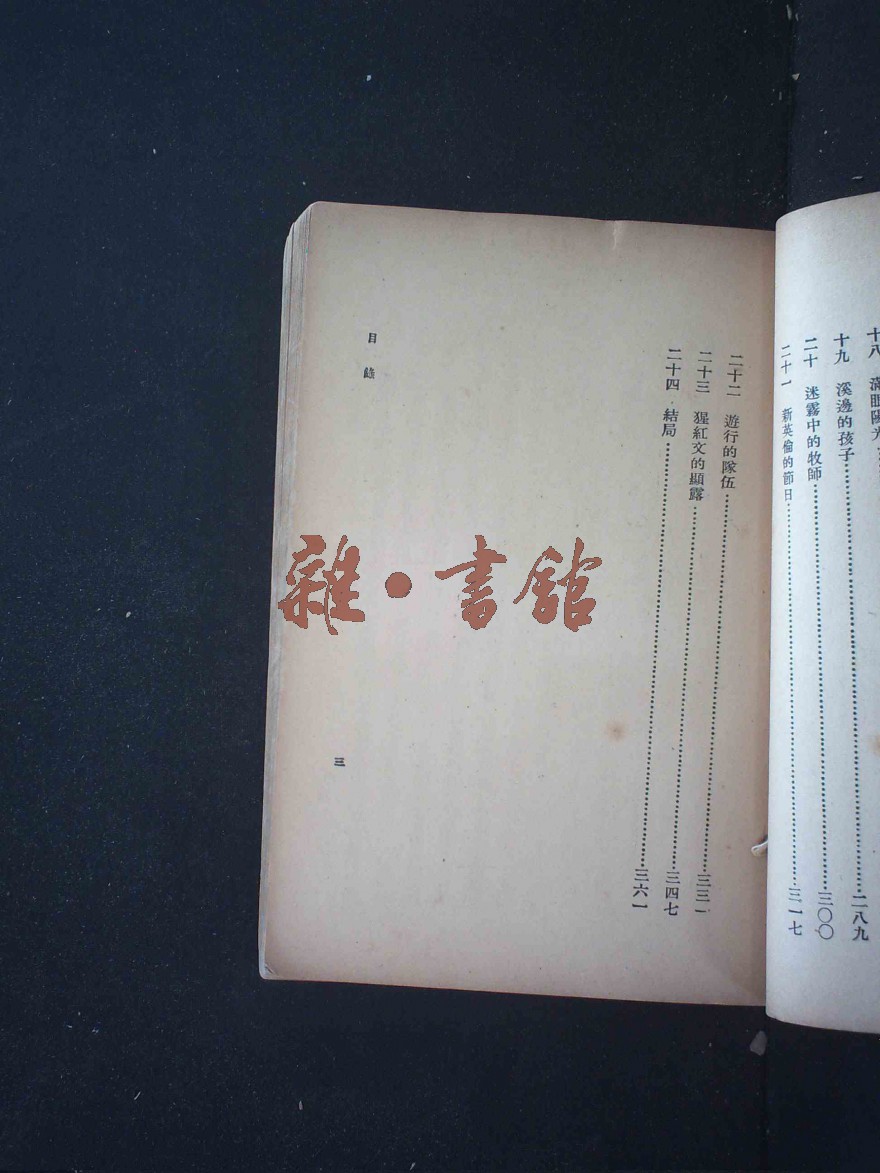 十八 滿眼陽光
十九 溪邊的孩子 二八九
二十 迷霧中的牧師 三〇〇
二十一 新英倫的節日 三一七
二十二 遊行的隊伍 三三一
二十三 猩紅文的顯露 三四七
二十四 結局 三六一
目錄
三
雜·書館